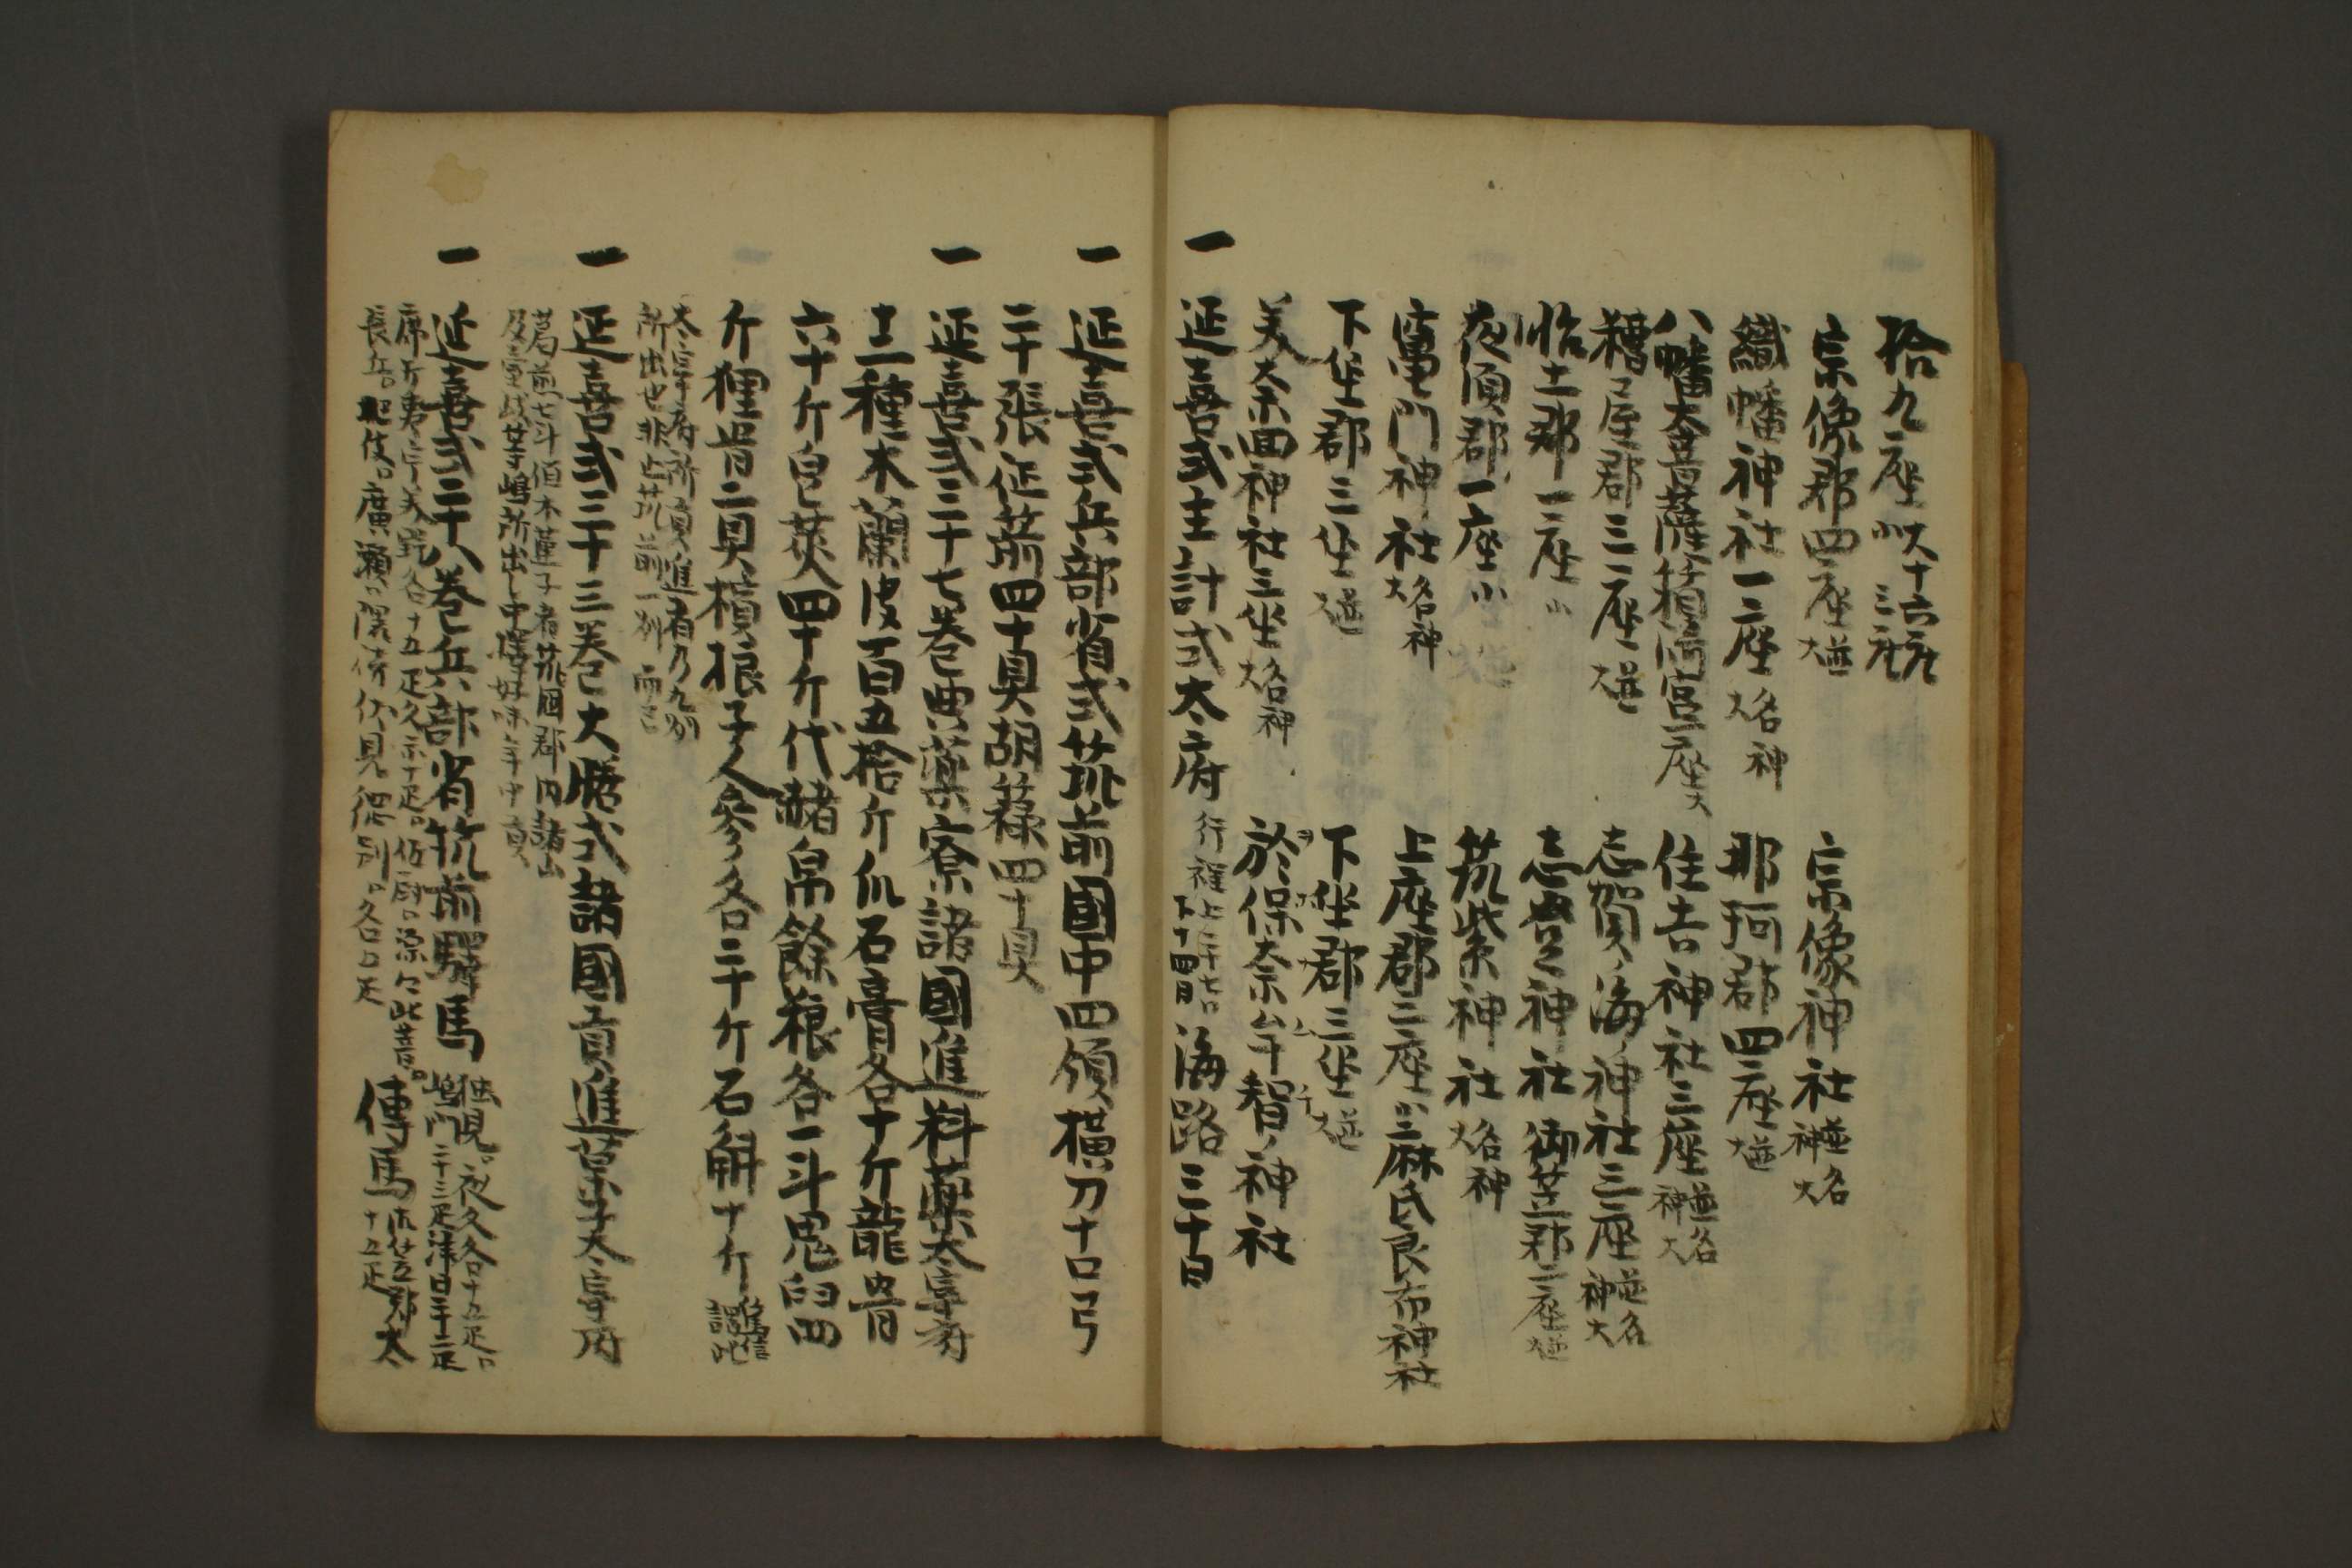 拾九座 大十六座 小三座
宗像郡四座 並大 宗像神社 並名神大
織幡神社一座 名神大 那珂郡四座 並大
八幡大菩薩筥崎宮一座 大 住吉神社三座 並名神大
糟屋郡三座 並大 志賀ノ海ノ神社三座 並名神大
怡土郡一座 小 志登神社 御笠郡二座 並大
夜須郡一座 小 筑紫神社 名神大
竈門神社 名神大 上座郡三座 小 麻氐良布神社
下坐郡三坐 並大 下坐郡三坐 並大
美奈回神社三坐 名神大 於保奈牟智ノ神社
一 延喜式主計式太府 行程上二十七日 下十四日 海路三十日
一 延喜式兵部省式筑前國甲四領横刀十口弓
二十張征箭四十具胡籙四十具
一 延喜式三十七巻典薬寮諸國進料藥太宰府
十二種木蘭皮一百五拾斤爪石膏各十斤龍骨
六十斤皀莢四十斤代赭帛餘粮各一斗思臼四
斤狸骨二具檳榔子人參各二十斤石斛十斤
太宰府所貢進者乃九州
所出也非止筑前一州而已
一 延喜式三十三巻大膳式諸國貢進菓子太宰府
葛煎七斗佰木蓮子者筑國郡内諸山
及壹岐等嶋所出し中擇好味年中貢
一 延喜式二十八巻兵部省筑前驛馬 独見。夜久各十五疋。
嶋門二十三疋津日二十二疋
席打夷守美野各十五疋久尓十疋。佐尉。深江比菩。
長丘。把伎。廣瀬。隈埼伏見綱別。各口疋 傳馬 御笠郡 十五疋 太